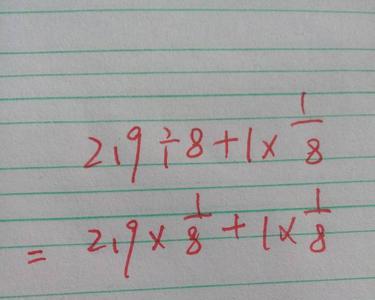 2.9÷8+1×1/8
=2.9×1/8+1×1/8